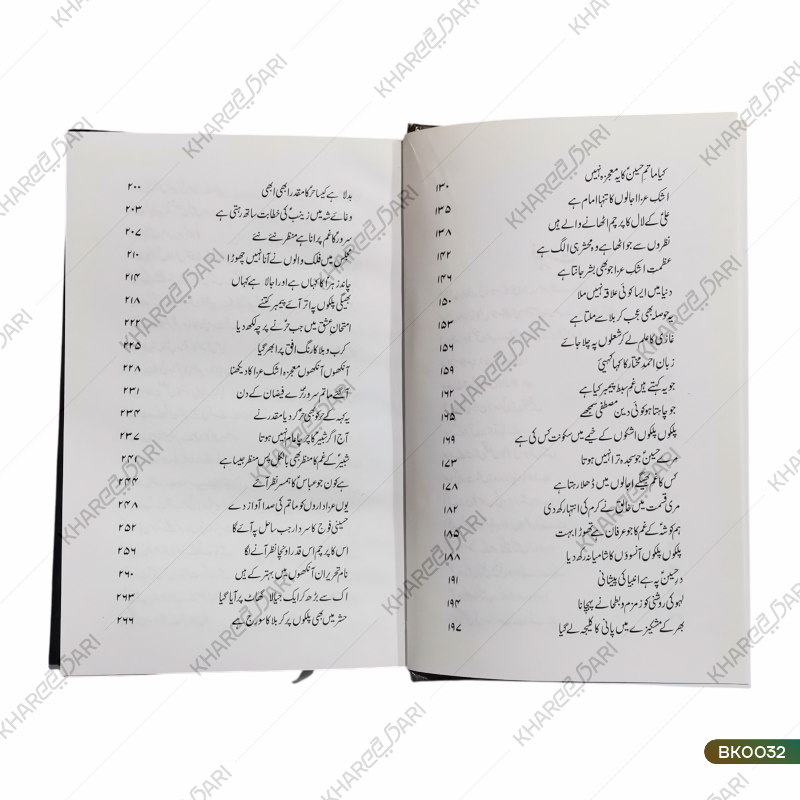 کیا ماتم حسینؑ کا یہ معجزہ نہیں ۱۳۰
اشک عزا اجالوں کا تنہا امام ہے ۱۳۵
علیؑ کے لال کا پرچم اٹھانے والے ہیں ۱۳۸
نظروں سے جو اٹھا ہے وہ محشر ہی الگ ہے ۱۴۲
عظمت اشک عزا جو بھی بشر جانتا ہے ۱۴۶
دنیا میں ایسا کوئی علاقہ نہیں ملا ۱۵۰
یہ حوصلہ بھی عجب کربلا سے ملتا ہے ۱۵۳
غازیؑ کا علم لے کر شعلوں پہ چلا جائے ۱۵۶
زبان احمد مختار کا کہا کہیئے ۱۵۹
جو یہ کہتے ہیں غم سبط پیمبر کیا ہے ۱۶۲
جو چاہتا ہو کوئی دین مصطفیٰ سمجھے ۱۶۵
پلکوں پلکوں اشکوں کے خیمے میں سکونت کس کی ہے ۱۶۹
مرے حسینؑ جو سجدہ ترا نہیں ہوتا ۱۷۳
کس کا غم بھیگے اجالوں میں ڈھلا رہتا ہے ۱۷۸
مری قسمت میں خالق نے کرم کی انتہا رکھ دی ۱۸۲
ہم کو شہؑ کے غم کا جو عرفان ہے تھوڑا بہت ۱۸۵
پلکوں پلکوں آنسوؤں کا شامیانہ رکھ دیا ۱۸۸
در حسینؑ پہ ہے انبیا کی پیشانی ۱۹۱
لہو کی روشنی کو زمزم و بطحا نے پہچانا ۱۹۴
بھر کے مشکیزے میں پانی کا کلیجہ لے گیا ۱۹۷
بدلا ہے کیسا حر کا مقدر ابھی ابھی ۲۰۰
وغائے شہ میں زینبؑ کی خطابت ساتھ رہتی ہے ۲۰۳
سرورؑ کا غم پرانا ہے منظر نئے نئے ۲۰۷
مجلس میں فلک والوں نے آنا نہیں چھوڑا ۲۱۰
چاند زہراؑ کا کہاں ہے اور اجالا ہے کہاں ۲۱۴
بھیگی پلکوں پہ اتر آئے پیمبر کتنے ۲۱۸
امتحان عشق میں جب حرؑ نے پرچہ لکھ دیا ۲۲۲
کرب و بلا کا رنگ افق پر ابھر گیا ۲۲۵
آنکھوں آنکھوں معجزہ اشک عزا کا دیکھنا ۲۲۸
آگئے ماتم سرورؑ کے فیضان کے دن ۲۳۱
یہ کہہ کے حر کو بھی حرؑ کر دیا مقدر نے ۲۳۴
آج اگر شبیرؑ کا چرچا عام نہیں ہوتا ۲۳۷
شبیرؑ کے غم کا منظر بھی بالکل پس منظر جیسا ہے ۲۴۱
ہے کون جو عباسؑ کا ہمسر نظر آئے ۲۴۴
یوں عزاداروں کو ماتم کی صدا آواز دے ۲۴۸
حسینی فوج کا سردار جب ساحل پہ آئے گا ۲۵۲
اس کا پرچم اس قدر اونچا نظر آنے لگا ۲۵۶
نام تحریر ان آنکھوں میں بہتر کے ہیں ۲۶۰
اک سے بڑھ کر ایک جیالا گھاٹ پر آیا گیا ۲۶۳
حشر میں بھی پلکوں پر کربلا کا سورج ہے ۲۶۶
BK0032